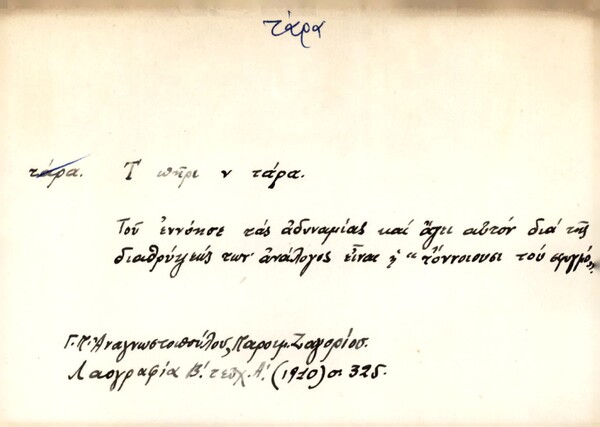 τάρα
τάρα. Τ πῆρι ν τάρα.
Τοῦ ἐννόησε τάς ἀδυναμίας καί ἄγει αὐτόν διά τῆς
διαθρύψεώς των ἀνάλογος εἶναι ἡ "τὄννοιουσι τού σφυγμό".
Γ.Π. Ἀναγνωστοπούλου, Παροιμ. Ζαγορίου.
Λαογραφία Β! τευχ. Α! (1910) σ 325.